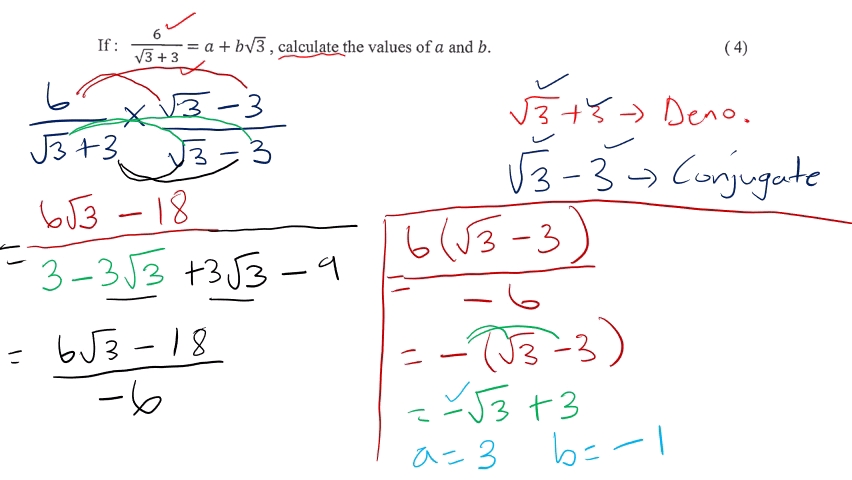 If : 6/(√3 + 3) = a + b√3 , calculate the values of a and b. ( 4)
6/(√3 + 3) × (√3 − 3)/(√3 − 3)
√3 + 3 → Deno.
√3 − 3 → Conjugate
= (6√3 − 18)/(3 − 3√3 + 3√3 − 9)
= (6√3 − 18)/(−6)
= 6(√3 − 3)/(−6)
= −(√3 − 3)
= −√3 + 3
a = 3 b = −1